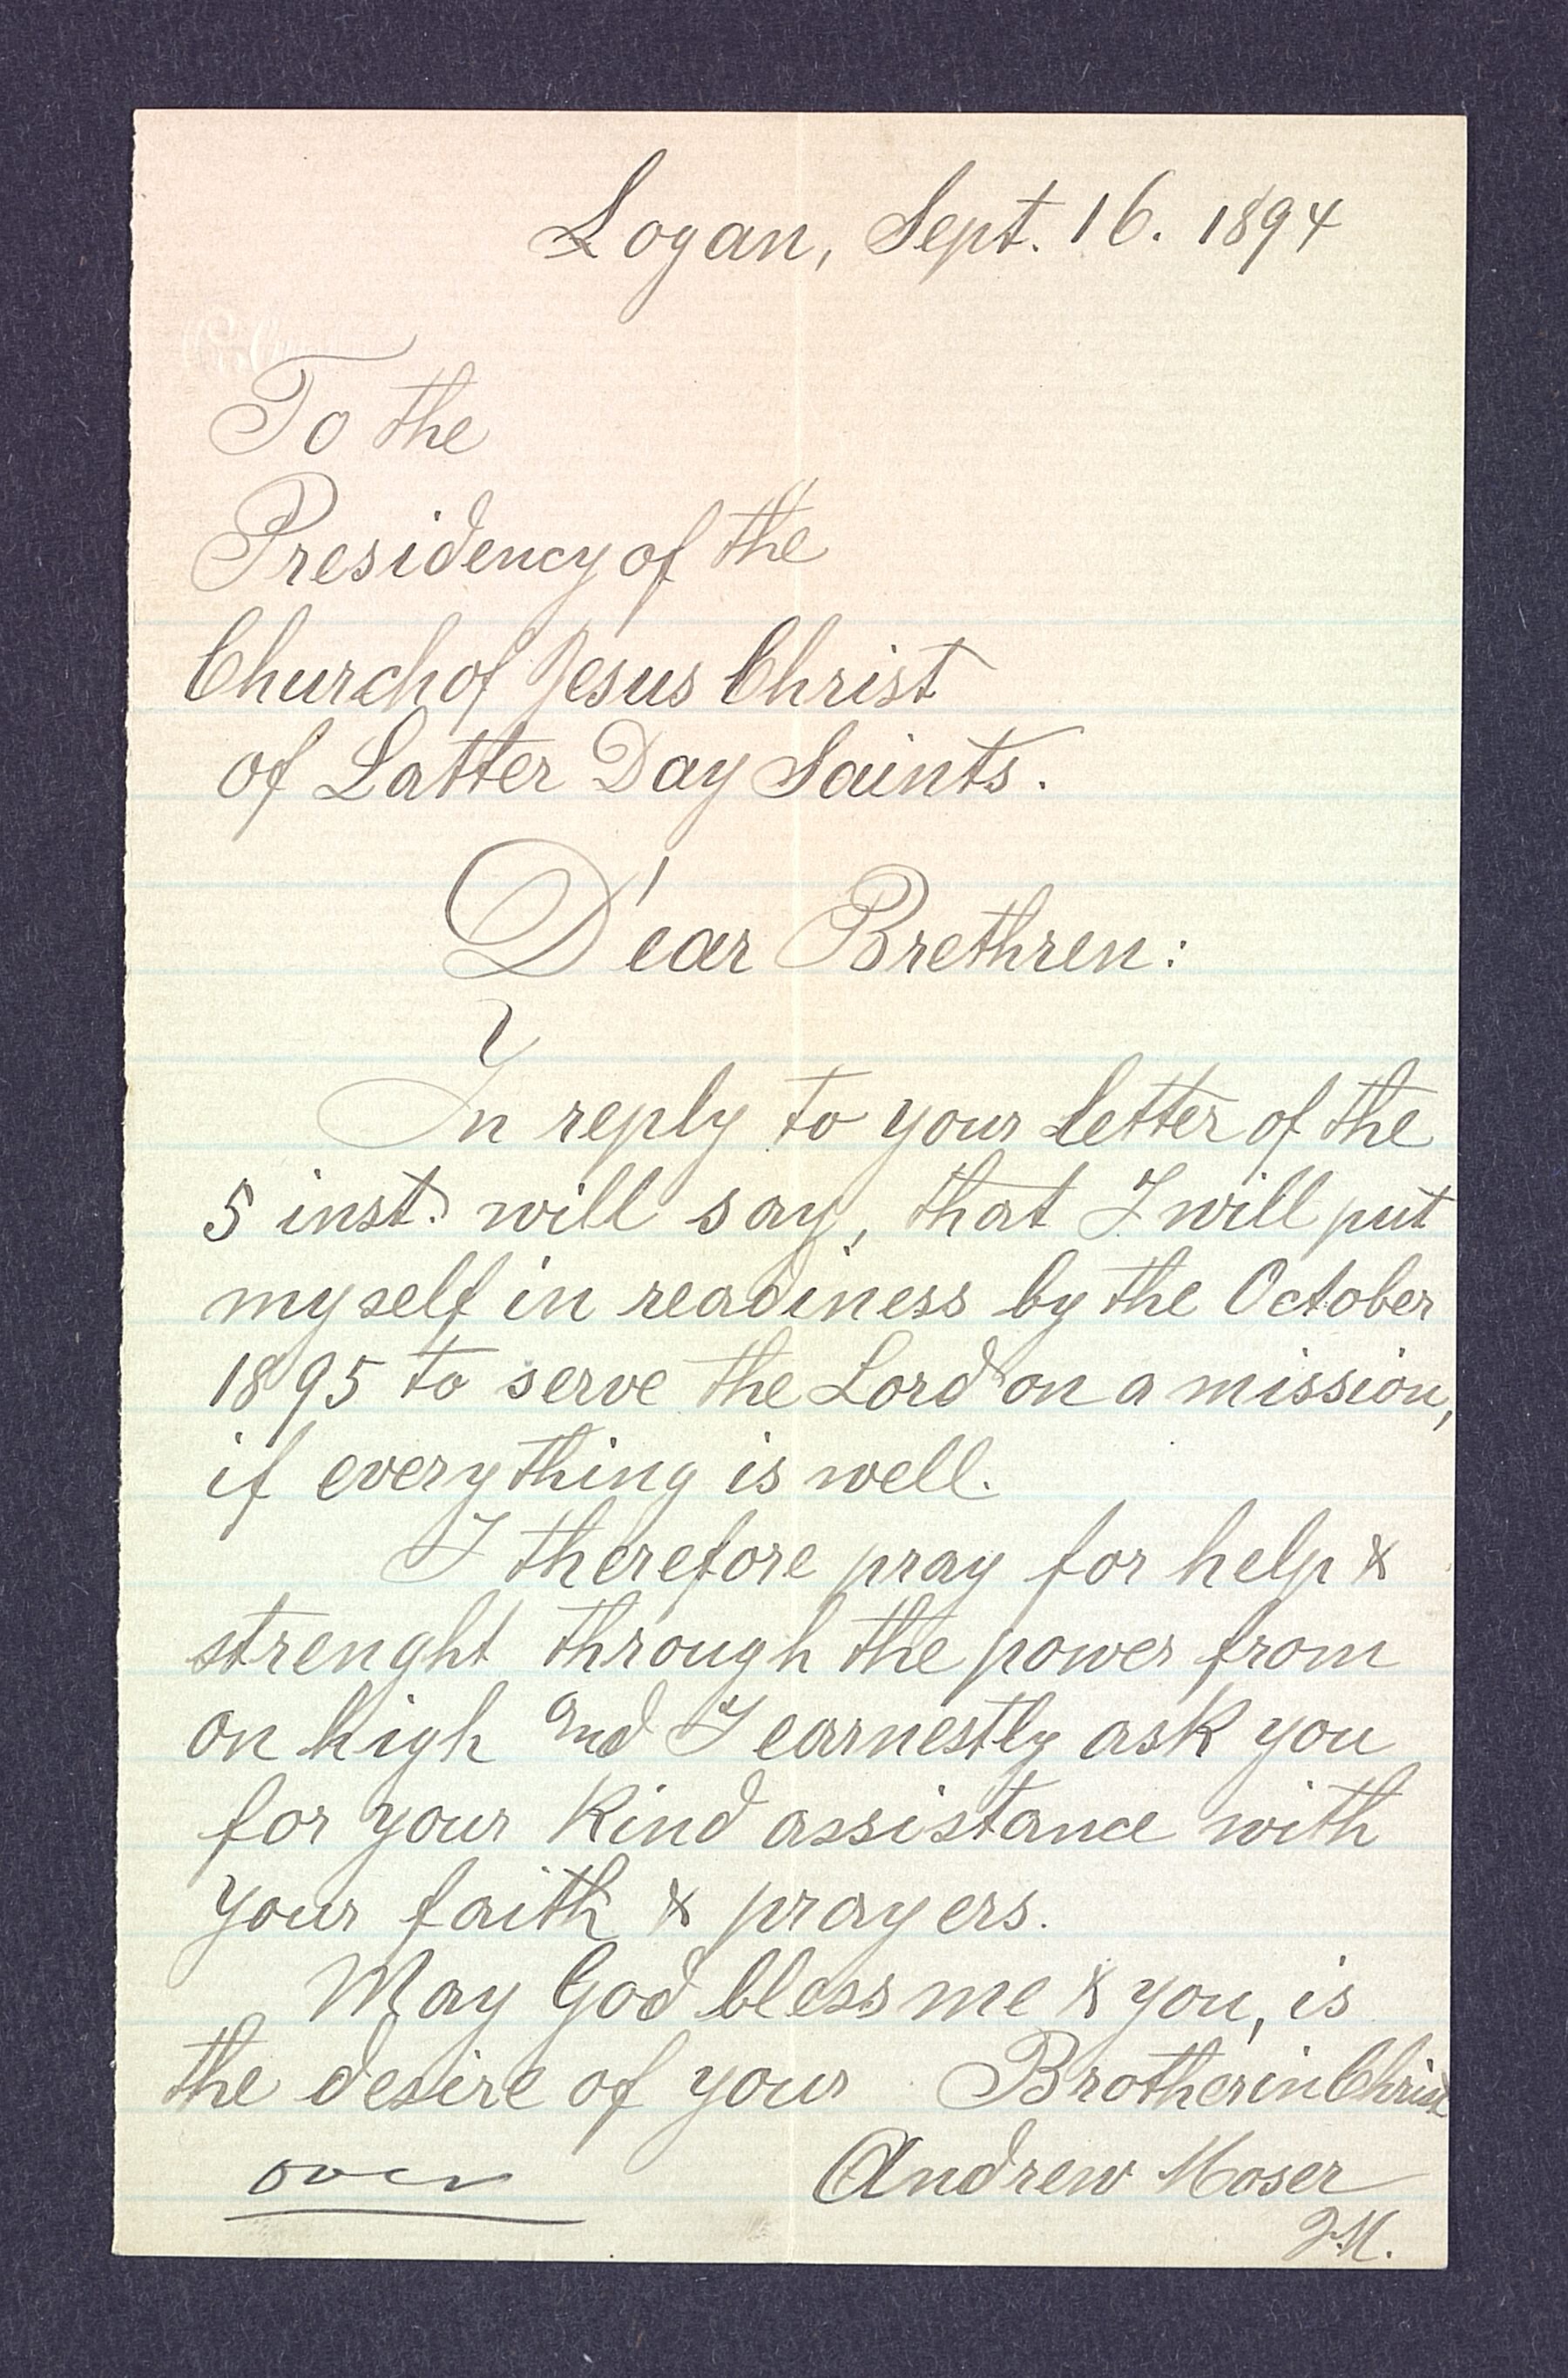 Logan, Sept. 16. 1894
To the
Presidency of the
Church of Jesus Christ
of Latter Day Saints.
Dear Brethren:
In reply to your letter of the
5 inst. will say, that I will put
myself in readiness by the October
1895 to serve the Lord on a mission,
if everything is well.
I therefore pray for help &
strenght through the power from
on high and I earnestly ask you
for your kind assistance with
your faith & prayers.
May God bless me & you, is
the desire of your Brother in Christ
Andrew Moser
over